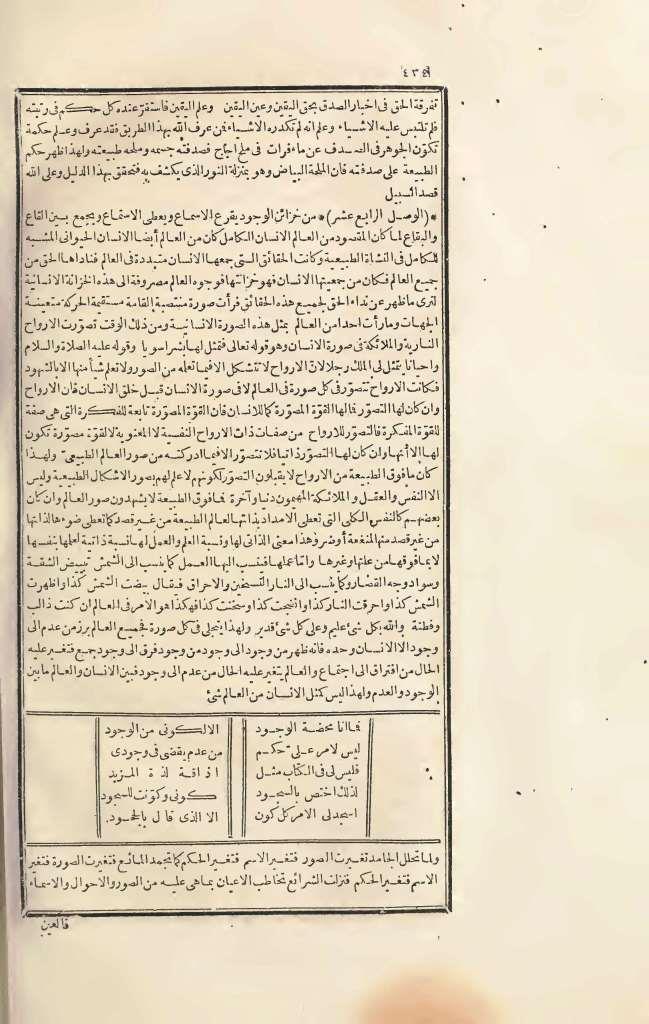 تفرقة الحق فى اخبار الصدق بحق اليقين وعين اليقين وعلم اليقين فاستقر عنده كل حكم فى رتبته
فلم تلتبس عليه الاشياء وعلم انه لم تكدره الاشياء فمن عرف الله بهذا الطريق فقد عرف وعلم حكمة
تكوّن الجوهر فى الصدف عن ماء فرات فى ملح اجاج فصدفته جسمه وملحه طبيعته ولهذا ظهر حكم
الطبيعة على صدفته فان الملحة البياض وهو بمنزلة النور الذى يكشف به فتحقق بهذا الدليل وعلى الله
قصد السبيل
*(الوصل الرابع عشر)* من خزائن الوجود يقرع الاسماع ويعطى الاستماع ويجمع بين القاع
والبقاع لما كان المقصود من العالم الانسان الكامل كان من العالم أيضا الانسان الحيوانى المشبه
للكامل فى النشاة الطبيعية وكانت الحقائق التى جمعها الانسان متبددة فى العالم فناداها الحق من
جميع العالم فكان من جمعيتها الانسان فهو خزانتها فوجوه العالم مصروفة الى هذه الخزانة الانسانية
لترى ما ظهر عن نداء الحق لجميع هذه الحقائق فرأت صورة منتصبة القامة مستقيمة الحركة متعينة
الجهات وما رأت احدا من العالم بمثل هذه الصورة الانسانية ومن ذلك الوقت تصوّرت الارواح
النارية والملائكة فى صورة الانسان وهو قوله تعالى فتمثل لها بشرا سويا وقوله عليه الصلاة والسلام
واحيانا يتمثل لى الملك رجلا لان الارواح لا تتشكل الا فيما تعلمه من الصور ولا تعلم شيأ منها الا بالشهود
فكانت الارواح تتصوّر فى كل صورة فى العالم لا فى صورة الانسان قبل خلق الانسان فان الارواح
وان كان لها التصوّر فما لها القوة المصوّرة كما للانسان فان القوة المصوّرة تابعة للفكرة التى هى صفة
للقوة المفكرة فالتصوّر للارواح من صفات ذات الارواح النفسية لا المعنوية لا لقوة مصوّرة تكون
لها الا أنها وان كان لها التصوّر ذاتيا فلا تتصوّر الا فيما ادركته من صور العالم الطبيعى ولهذا
كان ما فوق الطبيعة من الارواح لا يقبلون التصوّر لكونهم لا علم لهم بصور الاشكال الطبيعية وليس
الا النفس والعقل والملائكة المهيمون دنيا وآخرة فما فوق الطبيعة لا يشهدون صور العالم وان كان
بعضهم كالنفس الكلى التى تعطى الامداد بذاتها لعالم الطبيعة من غير قصد كما تعطى ضوءها لذاتها
من غير قصد منها لمنفعة أو ضرّ وهذا معنى الذاتى لها ونسبة العلم والعمل لها نسبة ذاتية لعلمها بنفسها
لا بما فوقها من علتها وغيرها واما عملها فينسب اليها العمل كما ينسب الى الشمس تبييض الشقة
وسواد وجه القصار وكما ينسب الى النار التسخين والاحراق فيقال بيضت الشمس كذا واظهرت
الشمس كذا واحرقت النار كذا وانضجت كذا وسخنت كذا فهكذا هو الامر فى العالم ان كنت ذا لب
وفطنة والله بكل شئ عليم وعلى كل شئ قدير ولهذا يتجلى فى كل صورة فجميع العالم برز من عدم الى
وجود الا الانسان وحده فانه ظهر من وجود الى وجود من وجود فرق الى وجود جمع فتغير عليه
الحال من افتراق الى اجتماع والعالم يتغير عليه الحال من عدم الى وجود فبين الانسان والعالم ما بين
الوجود والعدم ولهذا ليس كمثل الانسان من العالم شئ
فما انا محضة الوجود الا لكونى من الوجود
ليس لامر علىّ حكم من عدم يقضى فى وجودى
فليس لى فى الكتاب مثل اذاقة لذة المزيد
لذلك اختص بالسجود كونى وكوّنت للسجود
اسجد لى الامر كل كون الا الذى قال بالجحود
ولما تحلل الجامد تغيرت الصور فتغير الاسم فتغير الحكم كما تجمد المائع فتغيرت الصورة فتغير
الاسم فتغير الحكم فنزلت الشرائع تخاطب الاعيان بما هى عليه من الصور والاحوال والاسماء
فالعين